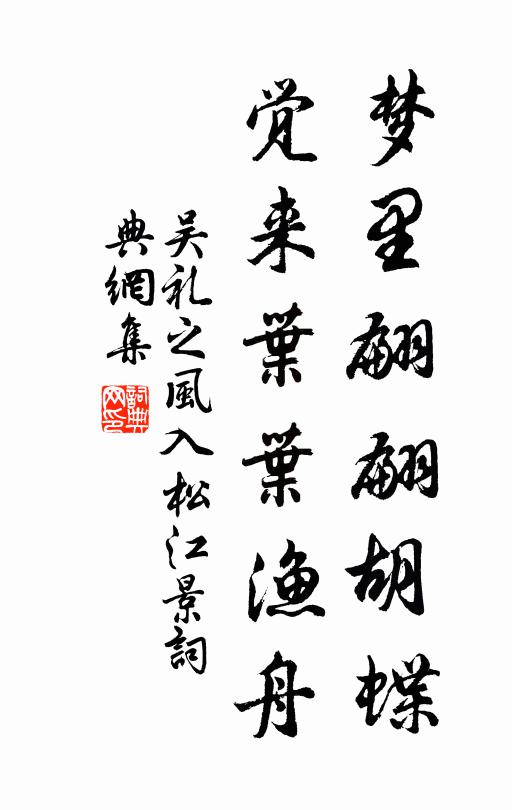 梦里翩翩胡蝶
觉来葉葉渔舟
吴礼之風入松江景詞
典網集
詞典
网印